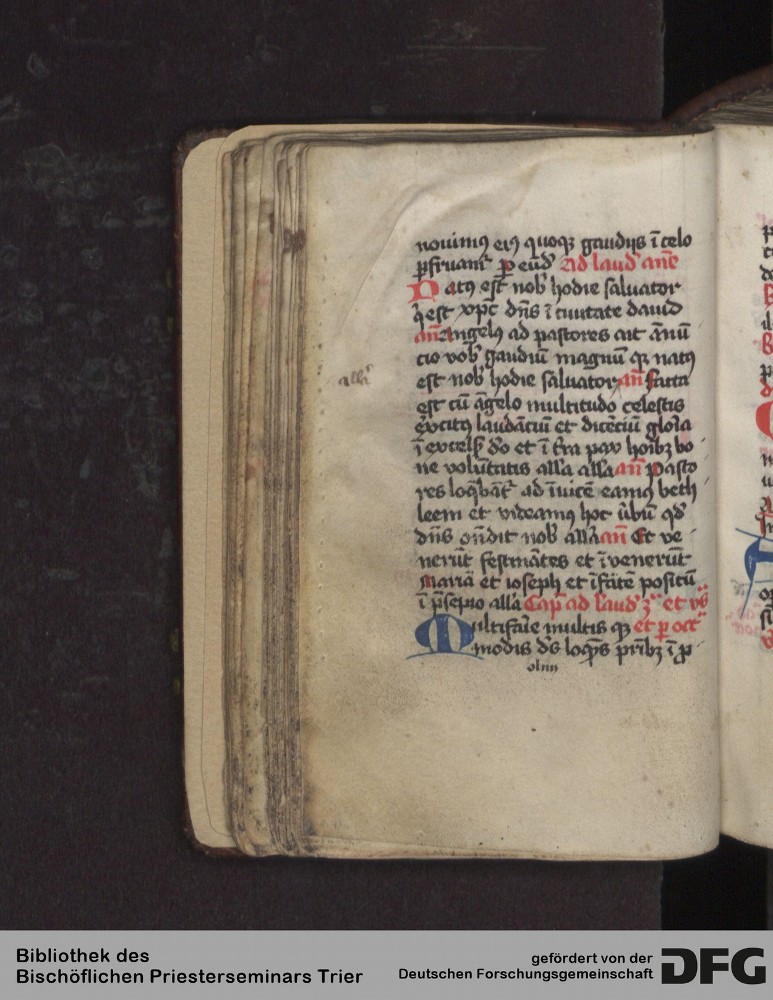 nouimꝯ eiꝯ quoqꝫ gaudijs ī celo
ꝑfruamᷣ ꝑ eūd̛ Ad laud̛ añe
Natꝯ est nob̛ hodie saluator
q̇ est xp̄c dn̄s ī ciuitate dauid
an̄ Angelꝯ ad pastores ait ānū
cio vob̛ gaudiū magnū qꝛ natꝯ
est nob̛ hodie saluator an̄ ffacta
alla
est cū āgelo multitudo celestis
exercitꝯ laudāciū et dicēciū glo͛ia
ī excels̛ deo et ī t͛ra pax hoībꝫ bo
ne volūtatis all'a all'a an̄ Pasto
res loq̄bāt᷑ ad īuicē eamꝯ beth
leem et videamꝯ hoc ūbū qd̛
dn̄s on̄dit nob̛ all'a an̄ Et ve
nerūt festinātes et īvenerūt
Mariā et ioseph et īfātē positū
ī p̄sepio all'a Cap̄ ad laud̛ ꝫ et
Multifarie multis qꝫ et ꝑ oct
modis ds̄ loq̄ns pr̄ibꝫ ī ꝓ
olim
Bibliothek des
Bischöflichen Priesterseminars Trier
gefördert von der
Deutschen Forschungsgemeinschaft
DFG